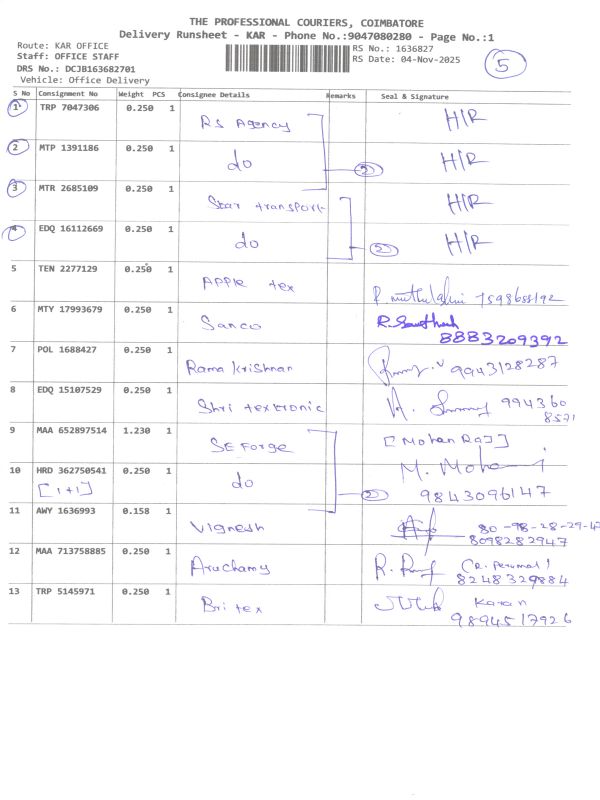 THE PROFESSIONAL COURIERS, COIMBATORE
Delivery Runsheet - KAR - Phone No.:9047080280 - Page No.:1
Route: KAR OFFICE
Staff: OFFICE STAFF
DRS No.: DCJB163682701
Vehicle: Office Delivery
RS No.: 1636827
RS Date: 04-Nov-2025
5
S No Consignment No Weight PCS Consignee Details Remarks Seal & Signature
1 TRP 7047306 0.250 1 RS Agency H/R
2 MTP 1391186 0.250 1 do 2 H/R
3 MTR 2685109 0.250 1 Star transport H/R
4 EDQ 16112669 0.250 1 do 2 H/R
5 TEN 2277129 0.250 1 APPle tex R. muthulakshmi 7598655192
6 MTY 17993679 0.250 1 Sanco
8883209392
7 POL 1688427 0.250 1 Rama Krishnan 9943128287
8 EDQ 15107529 0.250 1 Shri textronic 994360
8521
9 MAA 652897514 1.230 1 SE Forge [Mohan Raj]
10 HRD 362750541 0.250 1 do 2 M. Mohan
[1+1] 9843096147
11 AWY 1636993 0.158 1 Vignesh 80-98-28-29-47
8098282947
12 MAA 713758885 0.250 1 Aruchamy (R. Perumal)
8248329884
13 TRP 5145971 0.250 1 Britex Karan
9894517926